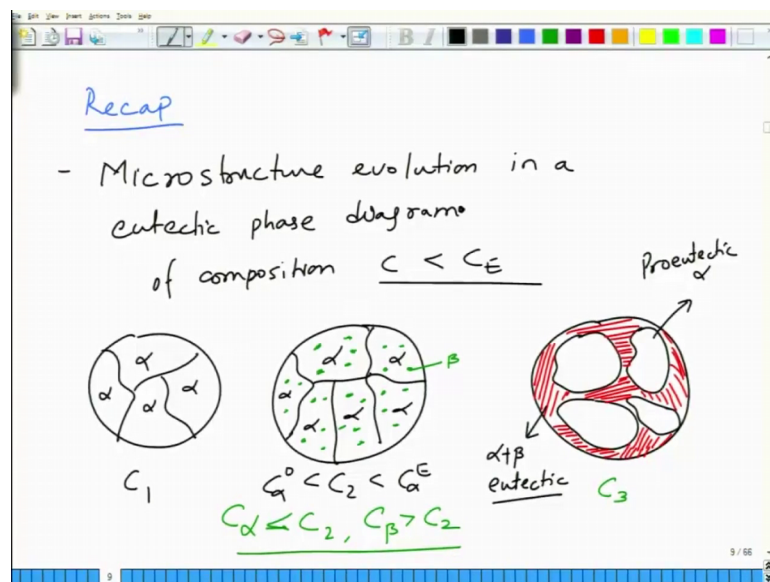 File Edit View Insert Actions Tools Help
B I
Recap
- Microstructure evolution in a
eutectic phase diagram
of composition C < C_E
Proeutectic
α
α α α α
α α α α α α
β
α+β
eutectic
C_1
C_α^0 < C_2 < C_α^E
C_3
C_α ≤ C_2, C_β > C_2
9 / 66
9